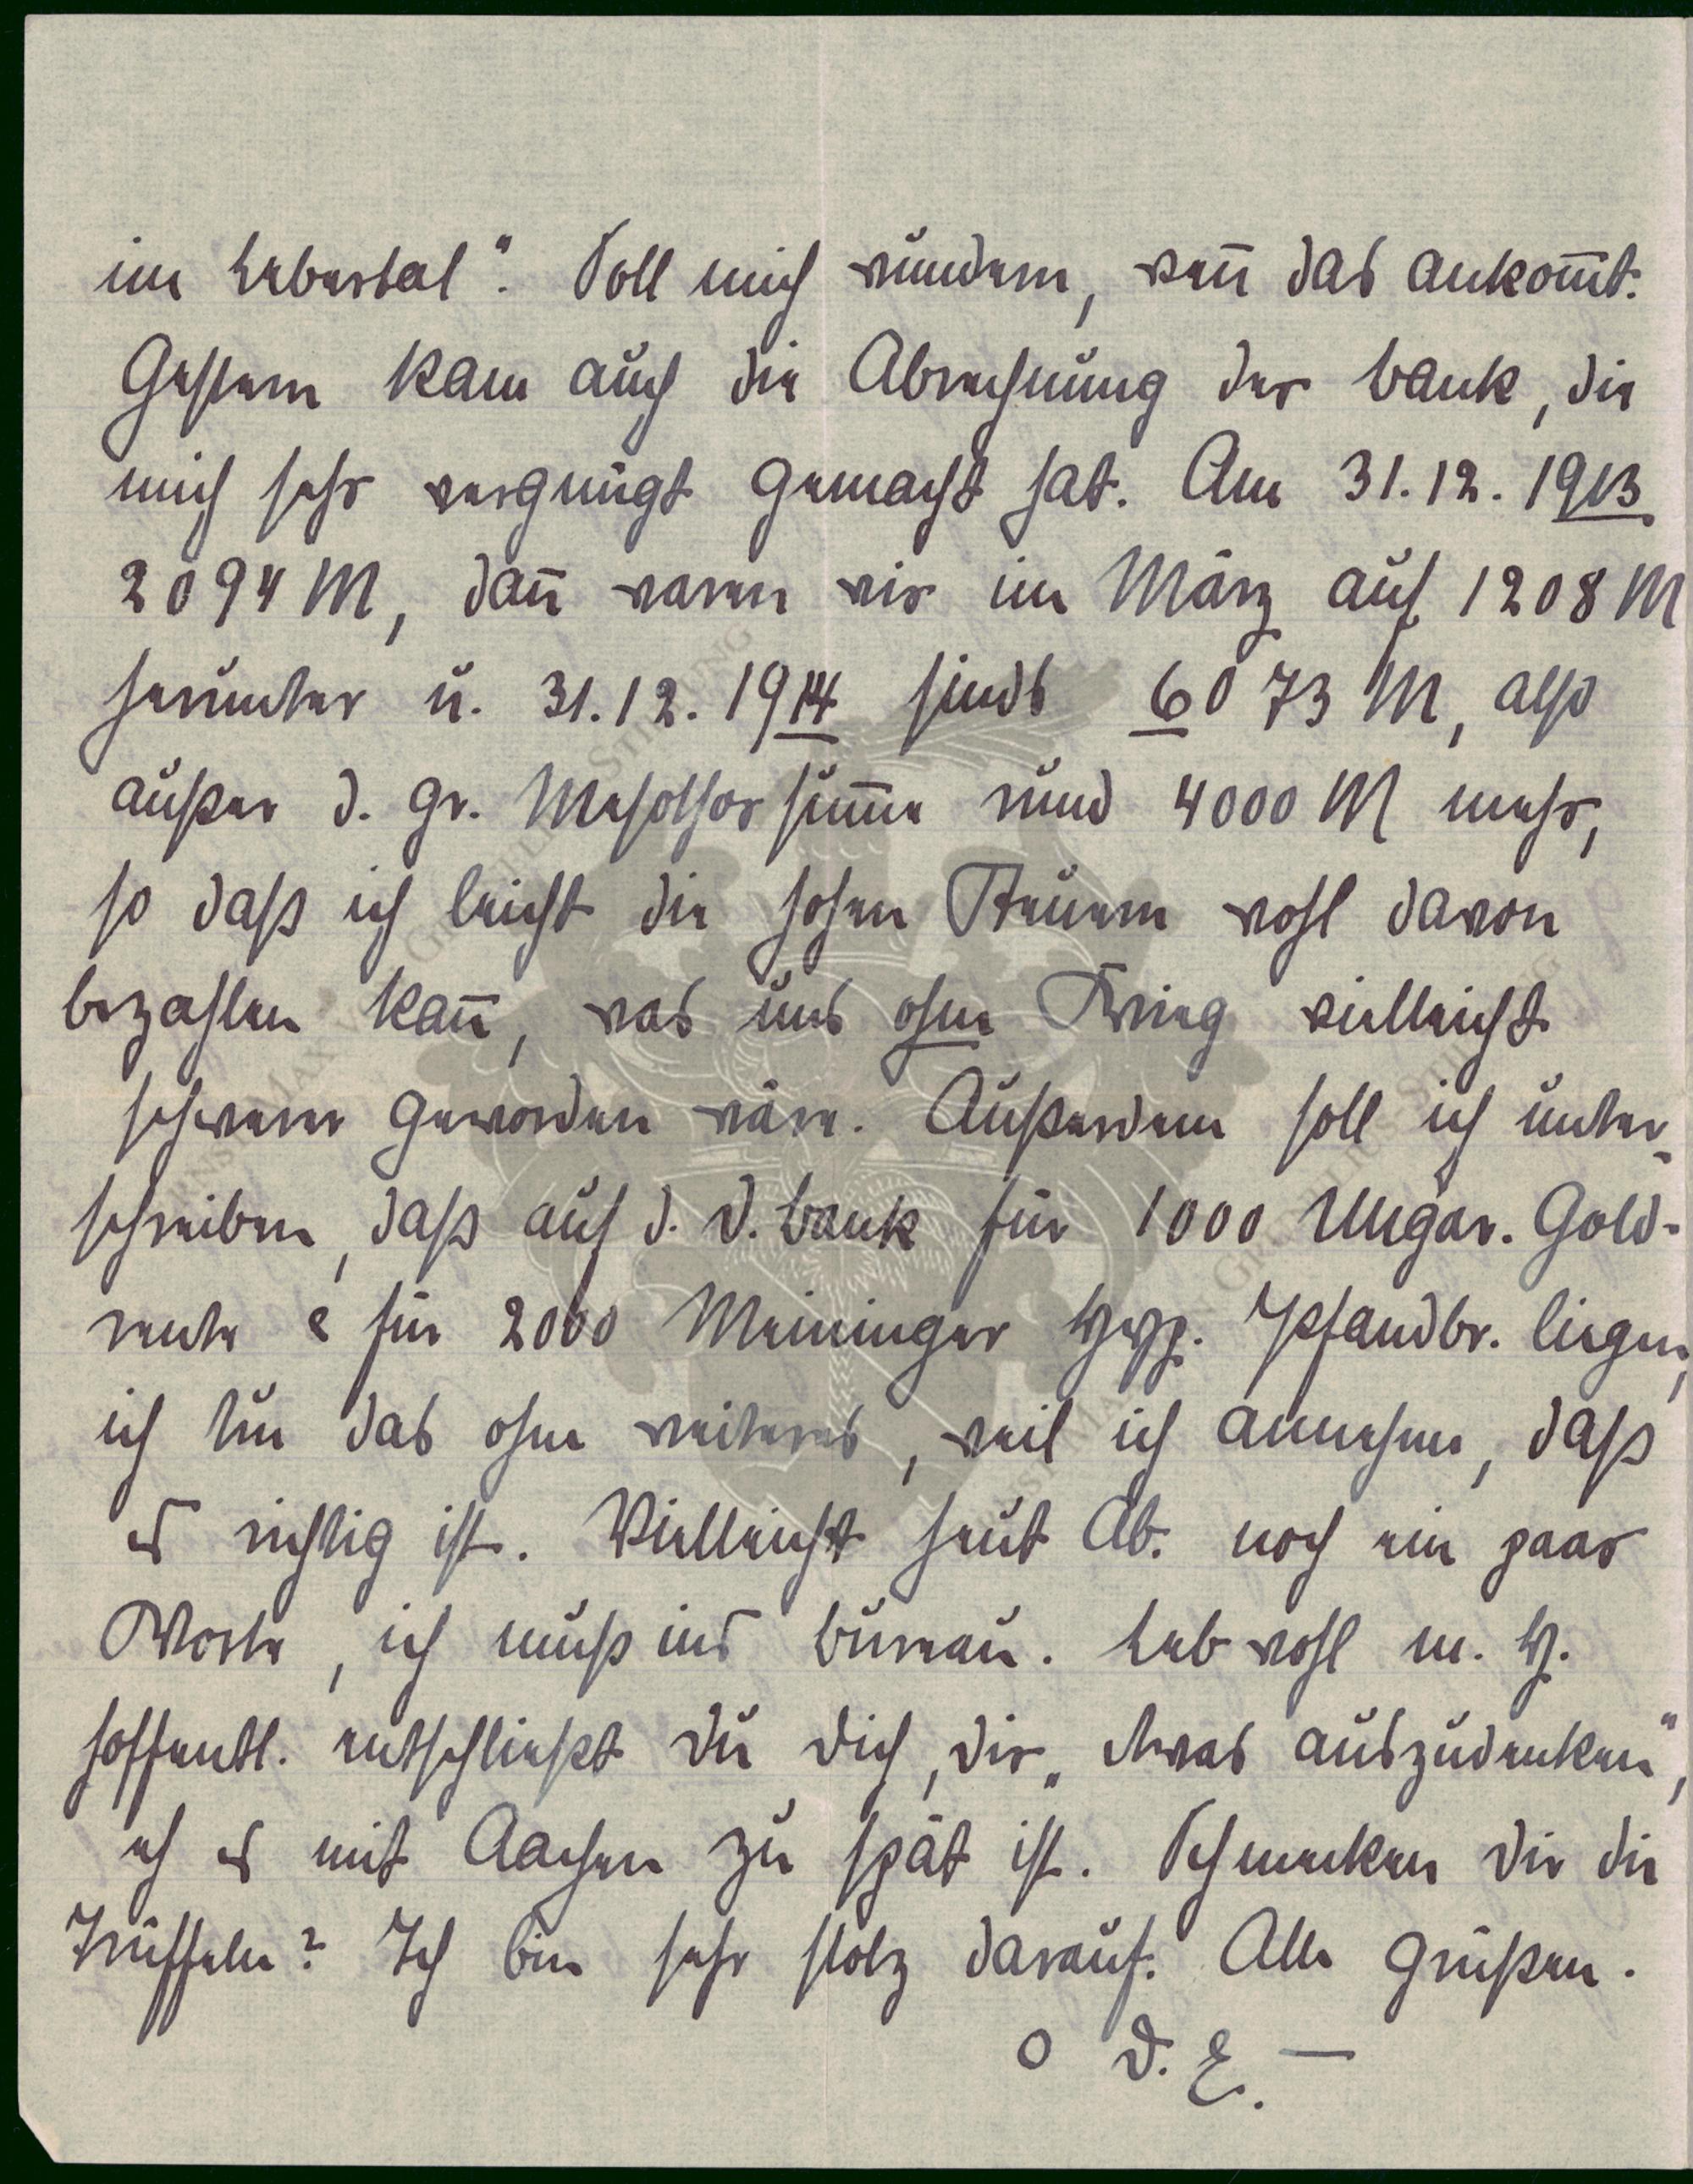 im Lebertal". Soll mich wundern, wen̄ das ankom̄t.
Gestern kam auch die Abrechnung der Bank, die
mich sehr vergnügt gemacht hat. Am 31.12.1913
2094 M, dan̄ waren wir im März auf 1208 M
herunter u. 31.12.1914 sinds 6073 M, also
außer d. gr. sum̄e rund 4000 M mehr,
so daß ich leicht die hohen Steuern wohl davon
bezahlen kan̄, was uns ohne Krieg vielleicht
schwerer geworden wäre. Außerdem soll ich unter-
schreiben, daß auf d. D. Bank für 1000 Ungar. Gold-
rente & für 2000 Meininger Hyp. Pfandbr. liegen,
ich tu das ohne weiteres, weil ich annehme, daß
es richtig ist. Vielleicht heut Ab. noch ein paar
Worte, ich muß ins Büreau. Leb wohl m. H.
hoffentl. entschließt Du Dich, Dir „etwas auszudenken",
eh es mit Aachen zu spät ist. Schmecken Dir die
Trüffeln? Ich bin sehr stolz darauf. Alle grüßen.
O D. E. —